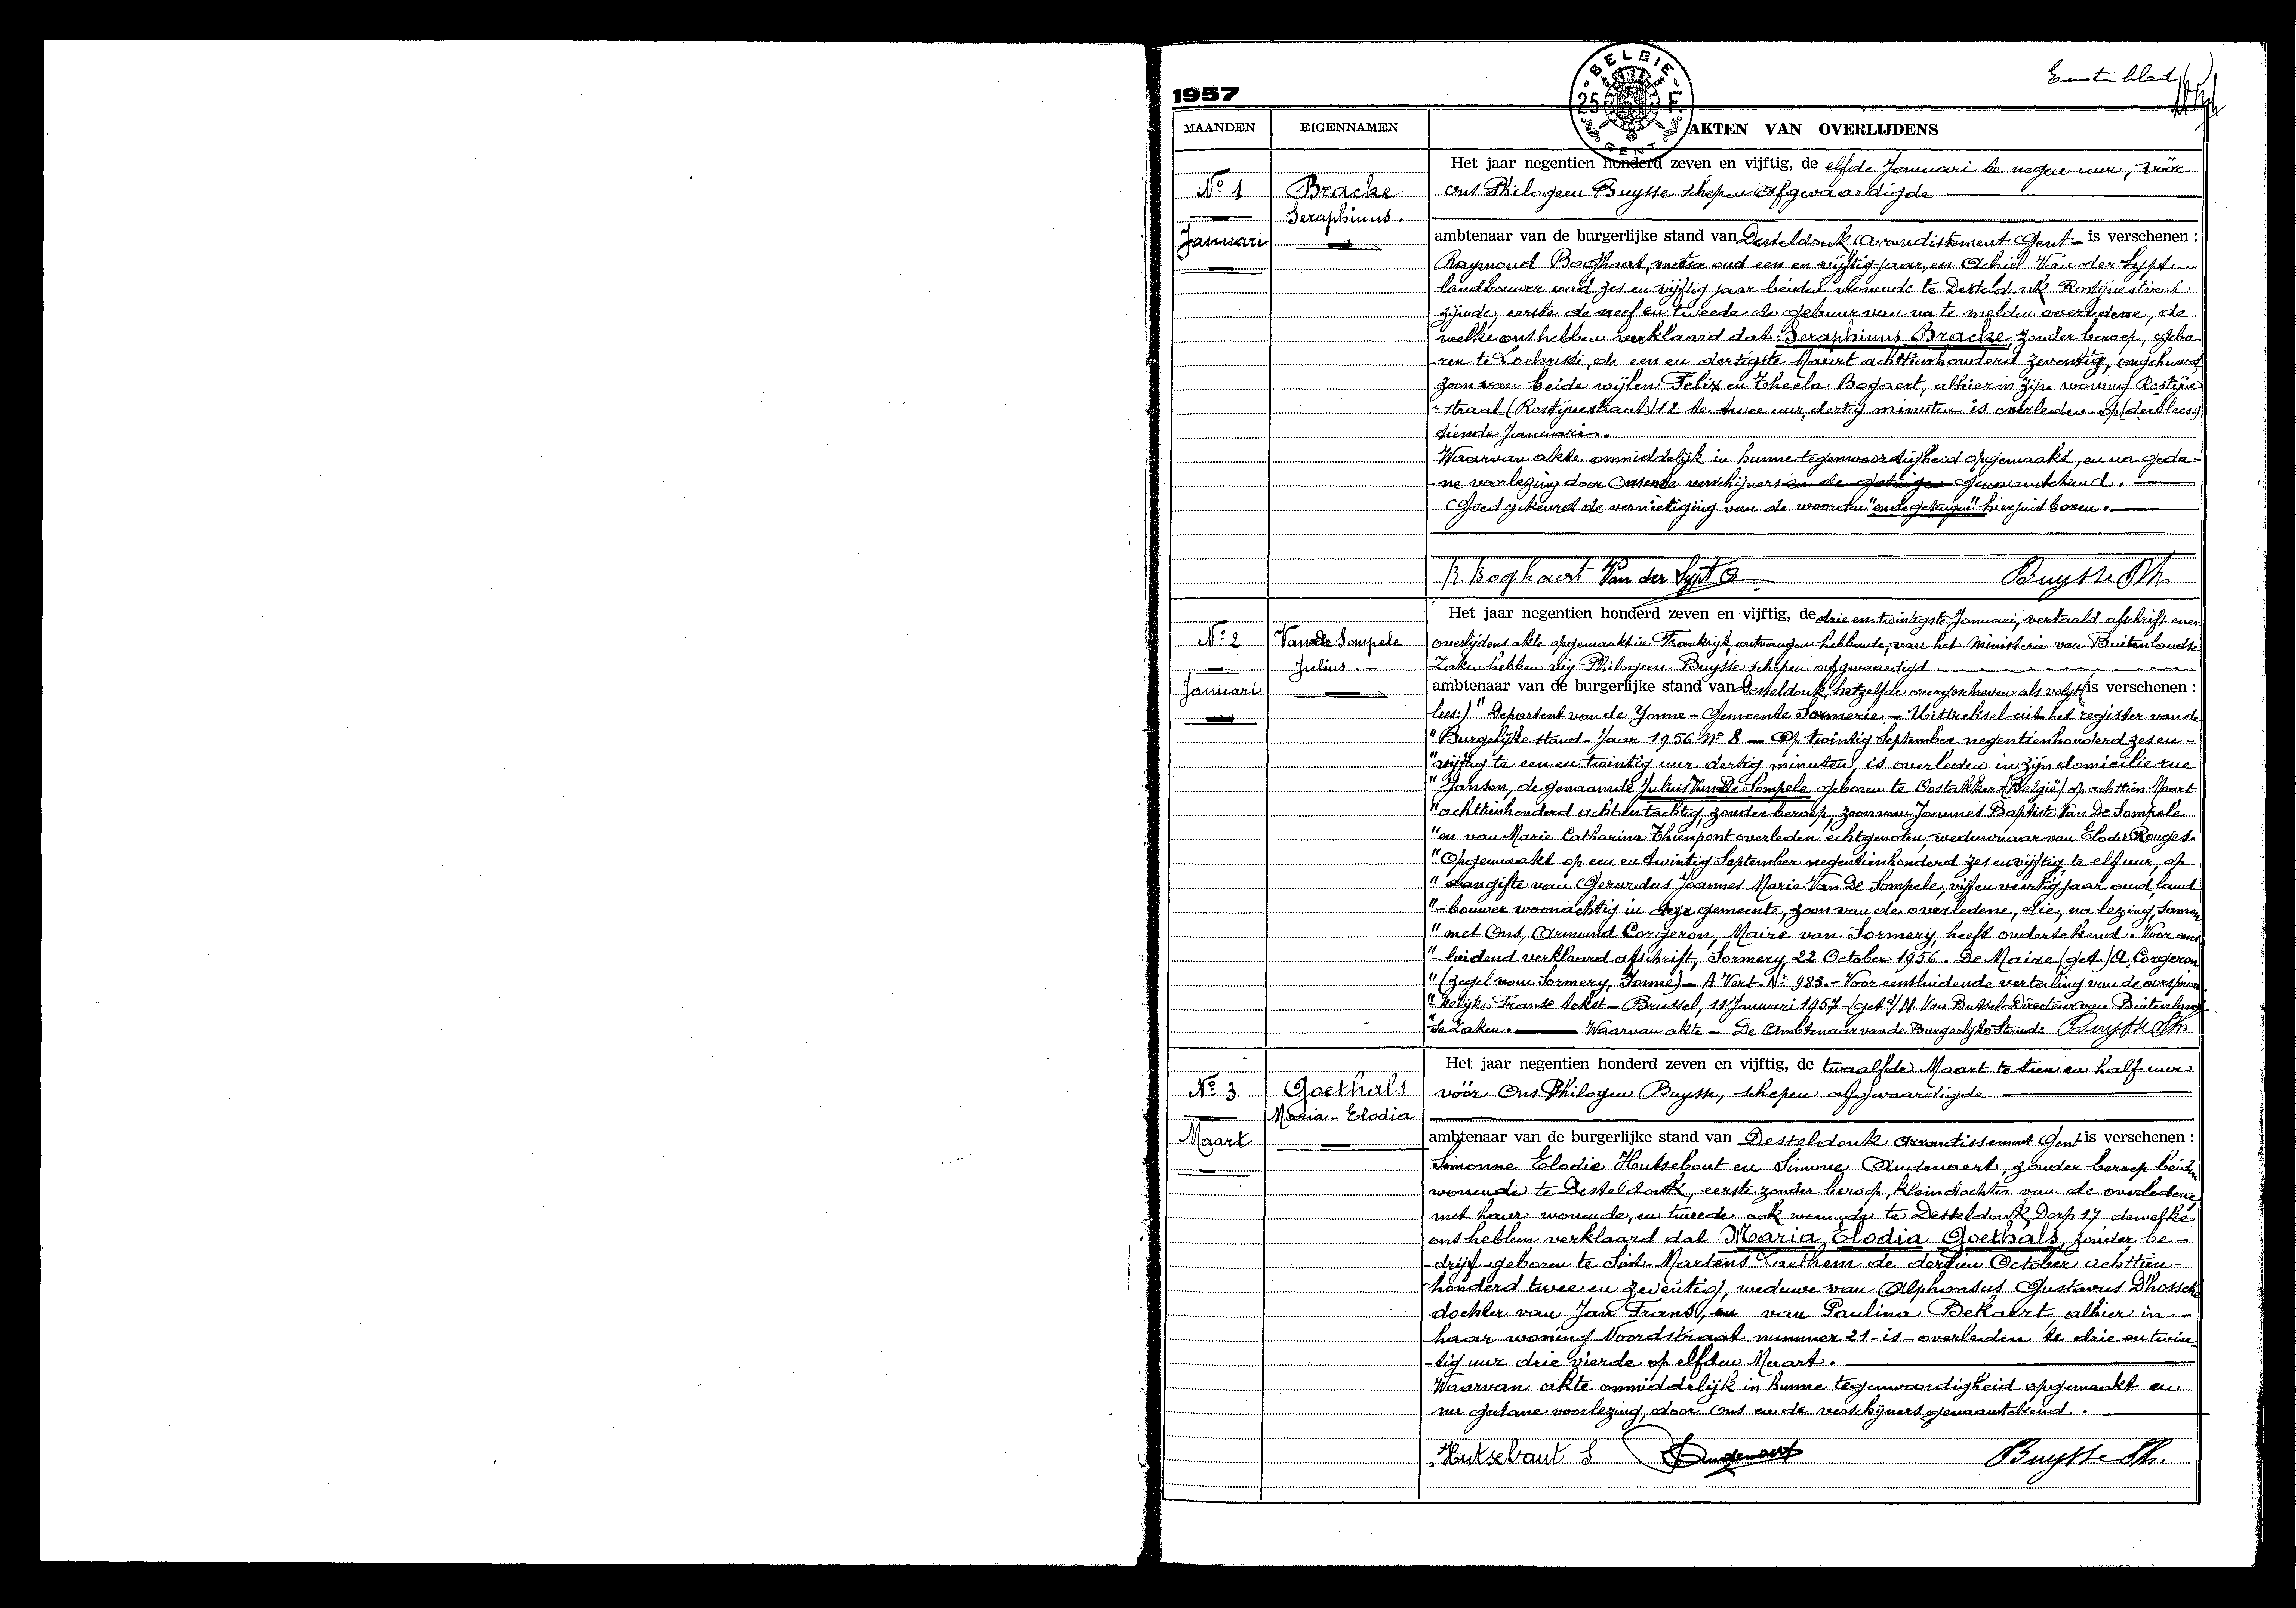 Eerste blad
1957
BELGIE
25 F.
GENT
MAANDEN
EIGENNAMEN
AKTEN VAN OVERLIJDENS
Nº 1
Januari
Bracke
Seraphinus.
Het jaar negentien honderd zeven en vijftig, de elfde Januari te negen uur, vóór
Ons Philogeen Buysse schepen afgevaardigde
ambtenaar van de burgerlijke stand van Desteldonk Arrondissement Gent - is verschenen :
Raymond Boghaert, metser oud een en vijftig jaar, en Achiel Van der Sypt
landbouwer oud zes en vijftig jaar beiden wonende te Desteldonk Rostijnestraat
zijnde, eerste de neef en tweede de gebuur van na te melden overledene, de
welke ons hebben verklaard dat: Seraphinus Bracke, zonder beroep, gebo-
ren te Lochristi, de een en dertigste Maart achttienhonderd zeventig, ongehuwd,
zoon van beide wijlen Felix en Thecla Bogaert, alhier in zijn woning Rostijne
-straat (Rostijnestraat) 12 te twee uur dertig minuten is overleden op (den lees:)
tiende Januari.
Waarvan akte onmiddelijk in hunne tegenwoordigheid opgemaakt, en na geda-
ne voorlezing door Ons en de verschijners en de getuigen genaamtekend.
Goedgekeurd de vernietiging van de woorden "en de getuigen" hierjuist boven.
R. Boghaert Van der Sypt A Buysse Ph.
Nº 2
Januari
Van De Sompele
Julius. -
Het jaar negentien honderd zeven en vijftig, de drie en twintigste Januari, vertaald afschrift ener
overlijdens akte opgemaakt in Frankrijk, ontvangen hebbende, van het Ministerie van Buitenlandse
Zaken hebben wij Philogeen Buysse schepen afgevaardigd
ambtenaar van de burgerlijke stand van Desteldonk, hetzelfde overgeschreven als volgt (is verschenen :
lees:) " Departent van de Yonne - Gemeente Sormerie - Uittreksel uit het register van de
" Burgelijke stand - Jaar 1956 Nº 8 - Op twintig September negentienhonderd zes en -
" vijftig te een en twintig uur dertig minuten, is overleden in zijn domicilie rue
" Janson, de genaamde Julius Van De Sompele geboren te Oostakker (België) op achttien Maart
" achttienhonderd acht en tachtig, zonder beroep, zoon van Joannes Baptiste Van De Sompele
" en van Marie Catharina Thienpont overleden echtgenoten, weduwnaar van Elodie Rouges.
" Opgemaakt op een en twintig September negentienhonderd zes en vijftig, te elf uur, op
" aangifte van Gerardus Joannes Marie Van De Sompele, vijf en veertig jaar oud, land
"-bouwer woonachtig in deze gemeente, zoon van de overledene, die, na lezing, samen
" met Ons, Armand Corgeron, Maire van Sormery, heeft ondertekend. Voor een
"-luidend verklaard afschrift, Sormery, 22 October 1956. De Maire, (get.) A. Corgeron
" (zegel van Sormery, Yonne) - A Vert. Nº 983. - Voor eensluidende vertaling van de oorspron
" kelijke Franse tekst - Brussel, 11 Januari 1957 (get.) M. Van Bussel Directeur van Buitenland
" se Zaken. Waarvan akte - De Ambtenaar van de Burgerlijke Stand: Buysse Ph
Nº 3
Maart
Goethals
Maria - Elodia
Het jaar negentien honderd zeven en vijftig, de twaalfde Maart te tien en half uur
vóór Ons Philogeen Buysse, schepen afgevaardigde
ambtenaar van de burgerlijke stand van Desteldonk arrontissement Gent is verschenen :
Simonne Elodie Hutsebaut en Simone Audenaert, zonder beroep beiden
wonende te Desteldonk, eerste zonder beroep, kleindochter van de overledene,
met haer wonende, en tweede ook wonende te Desteldonk, Dorp 17 dewelke
ons hebben verklaard dat Maria, Elodia Goethals, zonder be-
-drijf geboren te Sint-Martens Laethem de dertien October achttien-
honderd twee en zeventig, weduwe van Alphonsus Gustavus D'hossche
dochter van Jan Frans, en van Paulina Bekaert, alhier in -
haar woning Noordstraat nummer 21 is overleden te drie en twin-
-tig uur drie vierde op elfden Maart.
Waarvan akte onmiddelijk in hunne tegenwoordigheid opgemaakt en
na gedane voorlezing, door Ons en de verschijners genaamtekend.
Hutsebaut S Audenaert Buysse Ph.